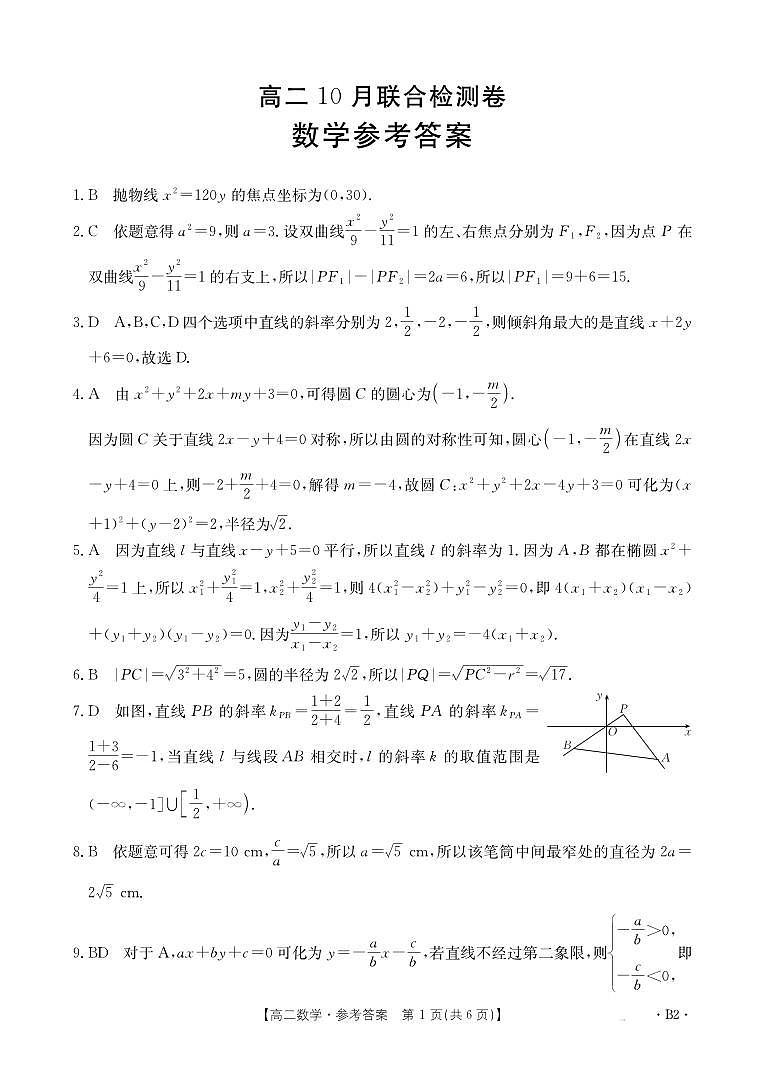 高二 10 月联合检测卷
数学参考答案
1. B 抛物线 x²=120y 的焦点坐标为(0,30).
2. C 依题意得 a²=9,则 a=3. 设双曲线x²/9−y²/11=1 的左、右焦点分别为 F₁,F₂,因为点 P 在
双曲线x²/9−y²/11=1 的右支上,所以|PF₁|−|PF₂|=2a=6,所以|PF₁|=9+6=15.
3. D A,B,C,D 四个选项中直线的斜率分别为 2,1/2,−2,−1/2,则倾斜角最大的是直线 x+2y
+6=0,故选 D.
4. A 由 x²+y²+2x+my+3=0,可得圆 C 的圆心为(−1,−m/2).
因为圆 C 关于直线 2x−y+4=0 对称,所以由圆的对称性可知,圆心(−1,−m/2)在直线 2x
−y+4=0 上,则−2+m/2+4=0,解得 m=−4,故圆 C:x²+y²+2x−4y+3=0 可化为(x
+1)²+(y−2)²=2,半径为√2.
5. A 因为直线 l 与直线 x−y+5=0 平行,所以直线 l 的斜率为 1. 因为 A,B 都在椭圆 x²+
y²/4=1 上,所以 x₁²+y₁²/4=1,x₂²+y₂²/4=1,则 4(x₁²−x₂²)+y₁²−y₂²=0,即 4(x₁+x₂)(x₁−x₂)
+(y₁+y₂)(y₁−y₂)=0. 因为(y₁−y₂)/(x₁−x₂)=1,所以 y₁+y₂=−4(x₁+x₂).
6. B |PC|=√(3²+4²)=5,圆的半径为 2√2,所以|PQ|=√(PC²−r²)=√17.
7. D 如图,直线 PB 的斜率 k_PB=(1+2)/(2+4)=1/2,直线 PA 的斜率 k_PA=
(1+3)/(2−6)=−1,当直线 l 与线段 AB 相交时,l 的斜率 k 的取值范围是
(−∞,−1]∪[1/2,+∞).
y
P
O
x
B
A
8. B 依题意可得 2c=10 cm,c/a=√5,所以 a=√5 cm,所以该笔筒中间最窄处的直径为 2a=
2√5 cm.
9. BD 对于 A,ax+by+c=0 可化为 y=−a/b x−c/b,若直线不经过第二象限,则{−a/b>0, −c/b<0, 即
【高二数学·参考答案 第 1 页(共 6 页)】
·B2·